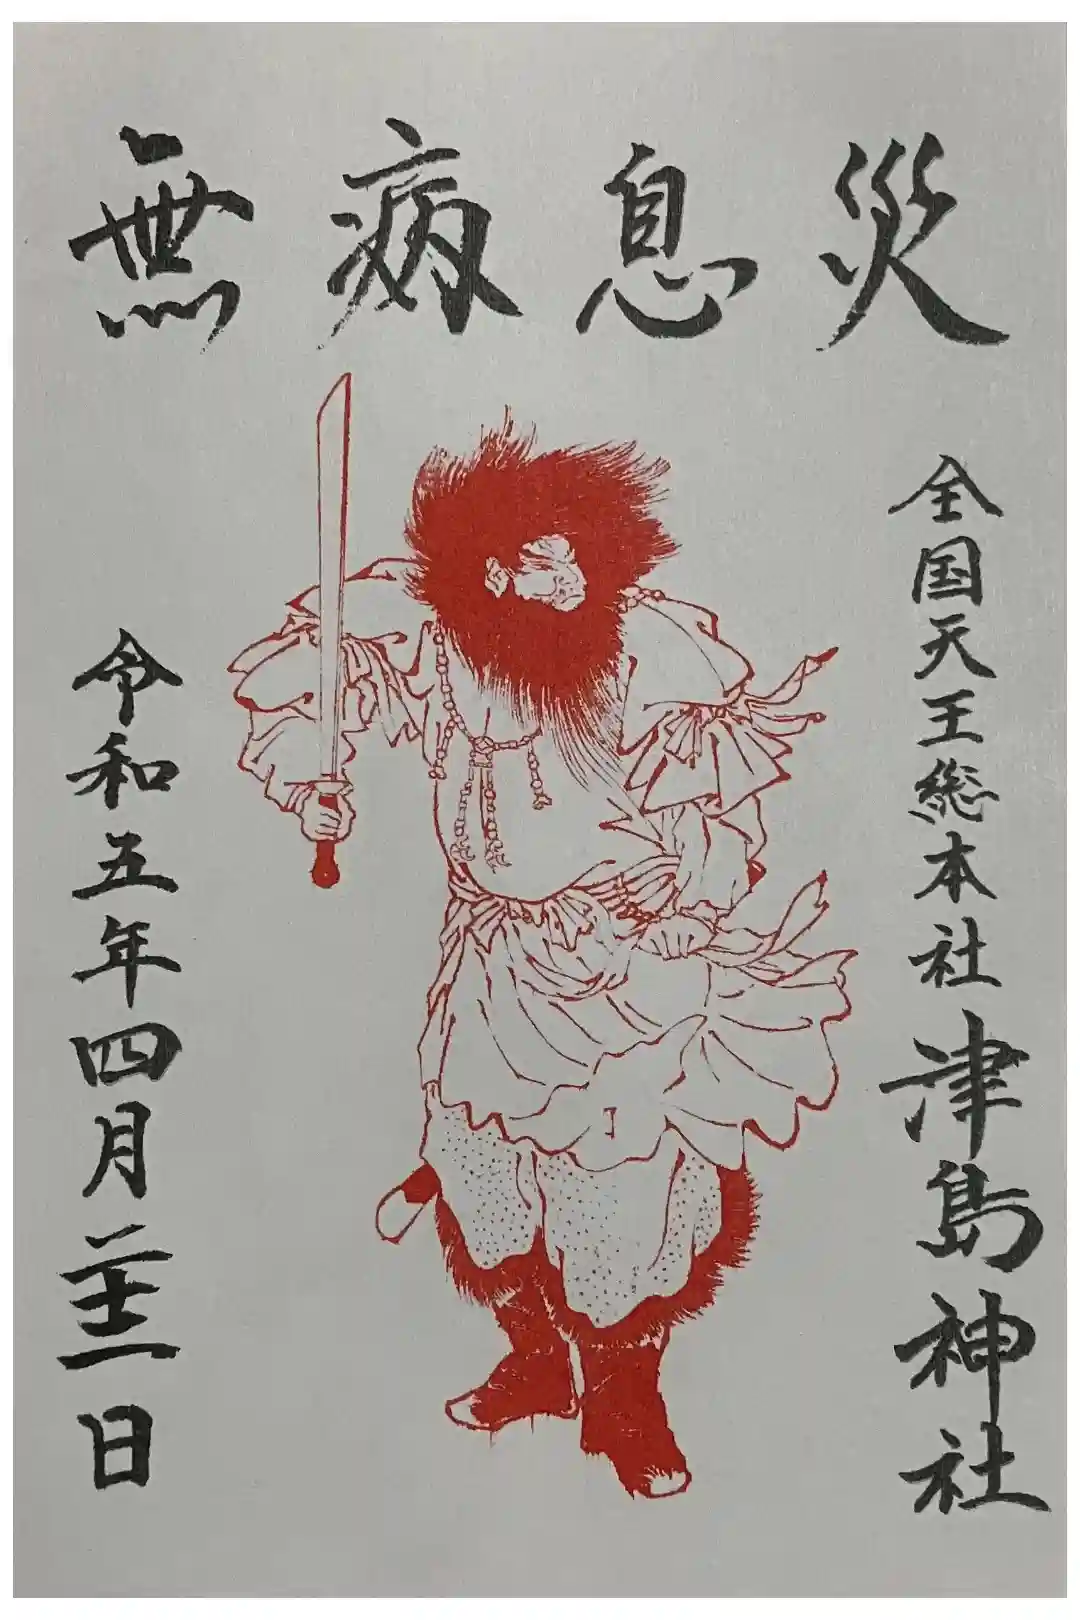 無病息災
全国天王総本社 津島神社
令和五年四月二十二日